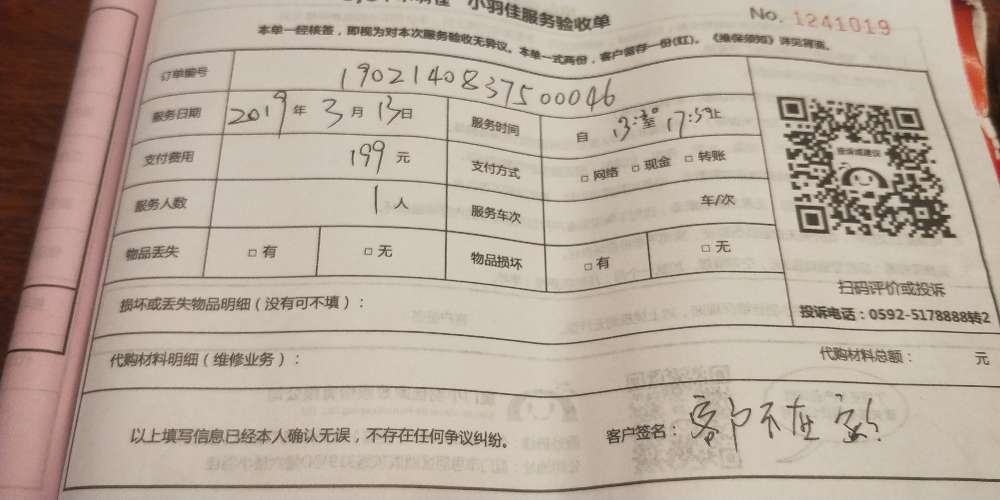 小羽佳服务验收单
No. 1241019
本单一经核签，即视为对本次服务验收无异议。本单一式两份，客户留存一份(红)。《维保须知》详见背面。
订单编号 190214083750046
服务日期 2019 年 3 月 13 日 服务时间 自 13:30 至 17:59 止
支付费用 199 元 支付方式 □ 网络 □ 现金 □ 转账
服务人数 1 人 服务车次 车/次
物品丢失 □ 有 □ 无 物品损坏 □ 有 □ 无
投诉或建议
扫码评价或投诉
投诉电话：0592-5178888转2
损坏或丢失物品明细（没有可不填）：
代购材料明细（维修业务）： 代购材料总额： 元
以上填写信息已经本人确认无误，不存在任何争议纠纷。 客户签名：客户不在家!